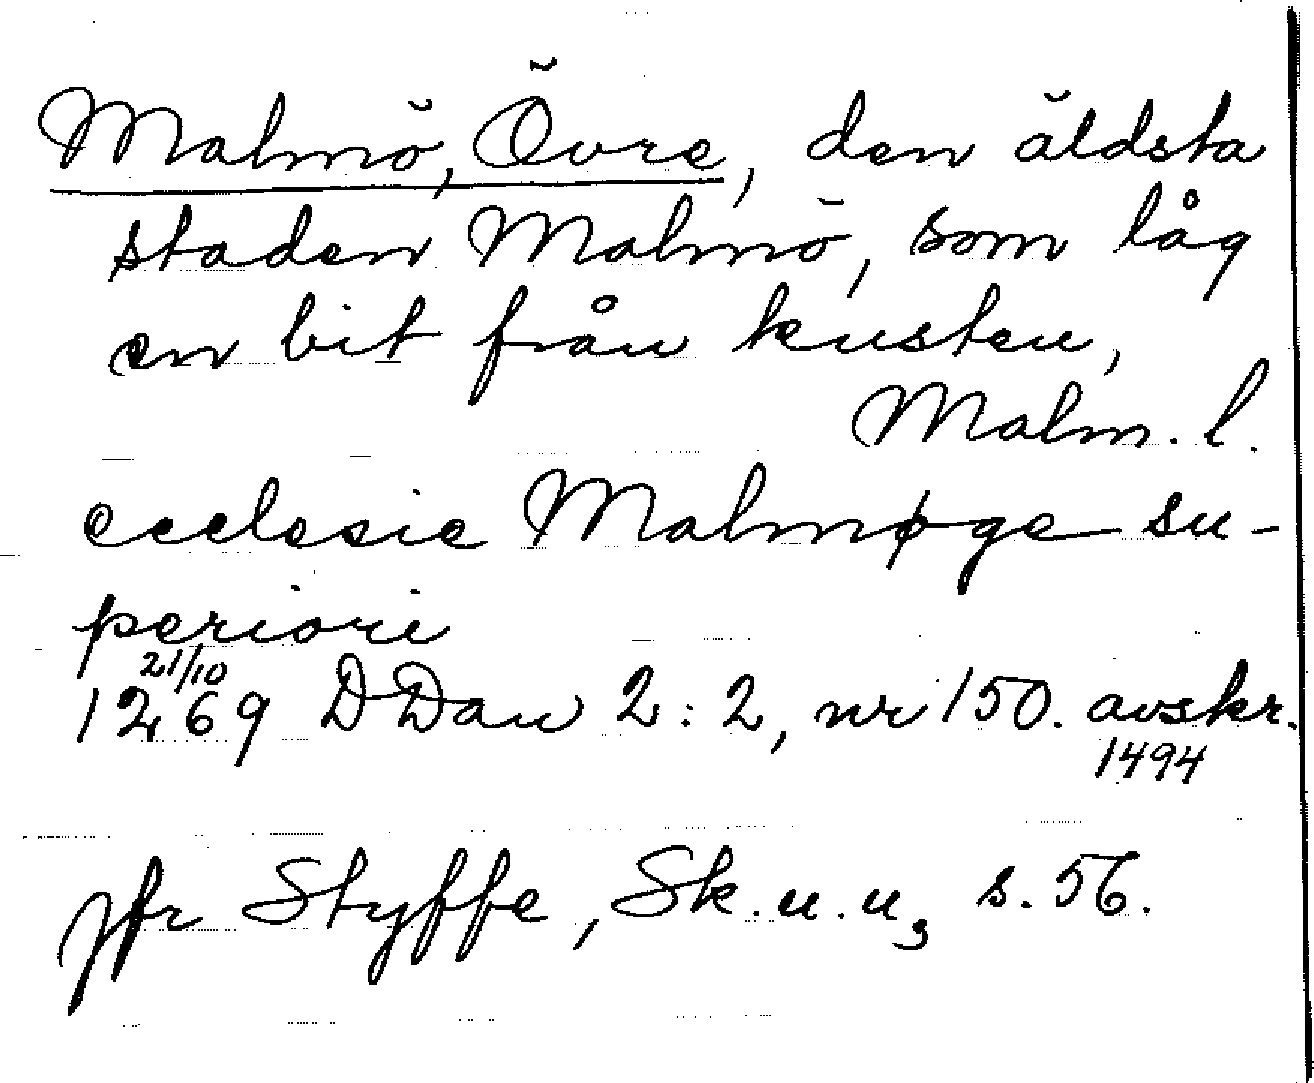 Malmö, Övre, den äldsta
staden Malmö, som låg
en bit från kusten,
Malm. l.
ecclesie Malmøge su-
periori
21/10
1269 DDan 2:2, nr 150. avskr.
1494
jfr Styffe, Sk.u.u, s. 56.